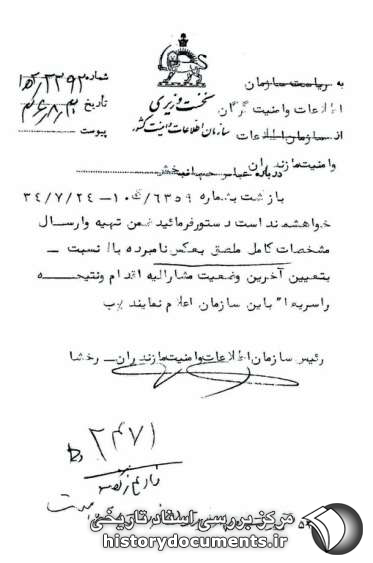 نخست وزیری
سازمان اطلاعات و امنیت کشور
شماره
تاریخ
پیوست
به ریاست سازمان
اطلاعات و امنیت گرگان
از سازمان اطلاعات
و امنیت مازندران
درباره عباس
بازگشت بشماره ۶۳۵۹/ک۱۰ - ۳۴/۷/۲۴
خواهشمند است دستور فرمائید ضمن تهیه و ارسال
مشخصات کامل ملصق بعکس نامبرده بالا نسبت
بتعیین آخرین وضعیت مشارالیه اقدام و نتیجه
را سریعا" باین سازمان اعلام نمایند
رئیس سازمان اطلاعات و امنیت مازندران - رخشا
۲۴۷۱
مرکز بررسی اسناد تاریخی
historydocuments.ir